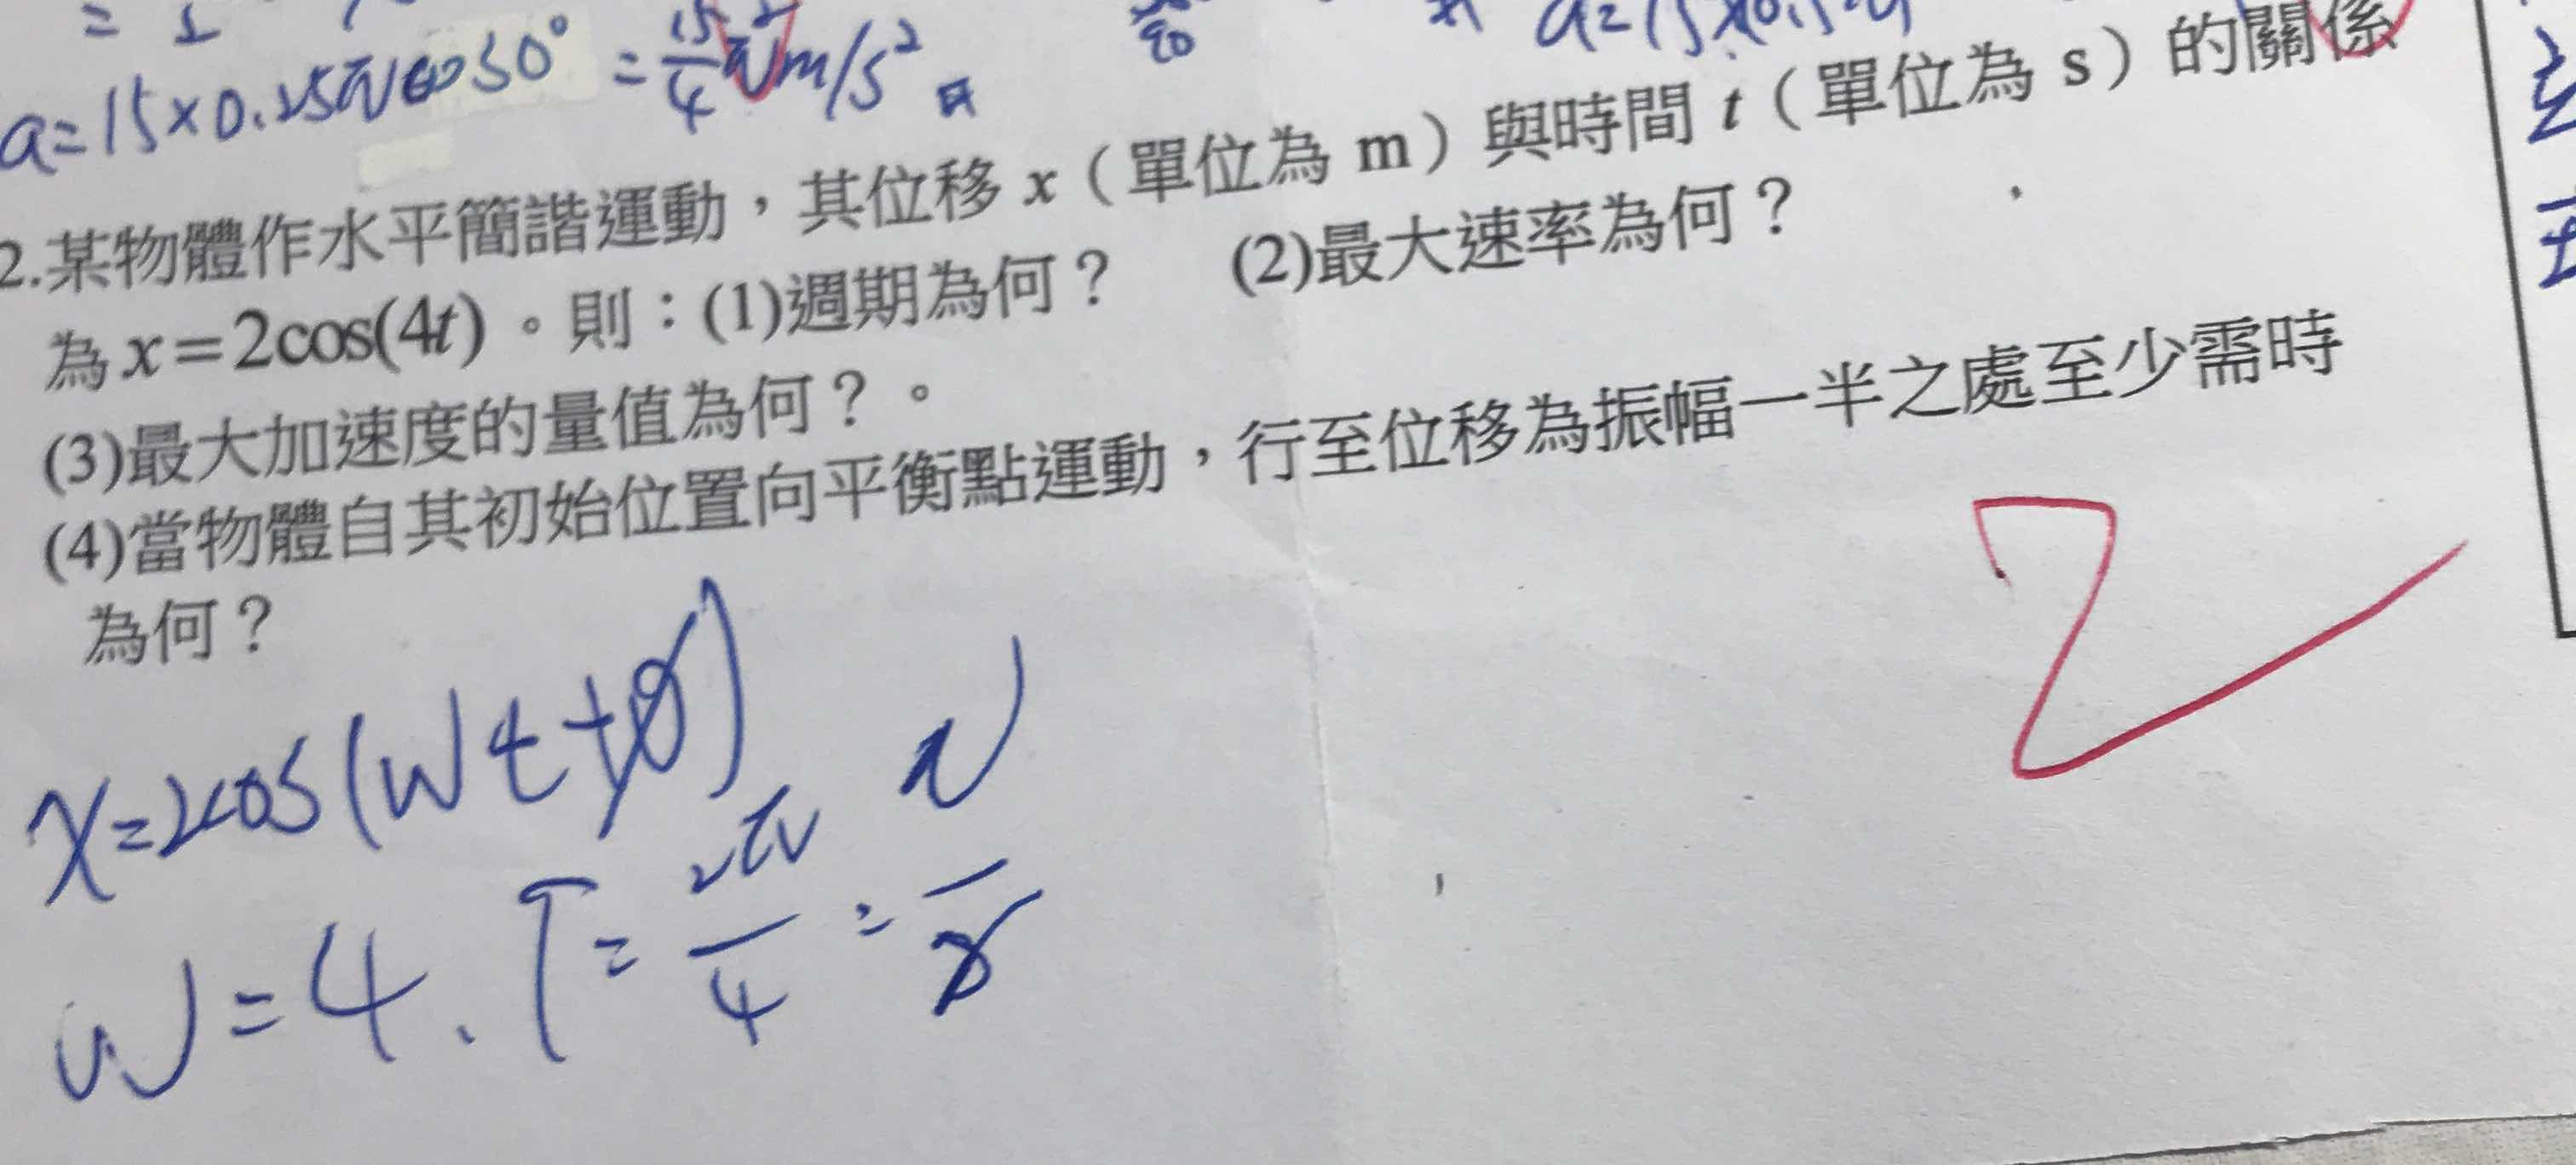 a=15×0.25π²cos0° = 15/4 π² m/s²
2.某物體作水平簡諧運動，其位移 x（單位為 m）與時間 t（單位為 s）的關係
為 x=2cos(4t)。則：(1)週期為何？ (2)最大速率為何？
(3)最大加速度的量值為何？。
(4)當物體自其初始位置向平衡點運動，行至位移為振幅一半之處至少需時
為何？
x=2cos(wt+ø)
w=4. T=2π/4=π/2